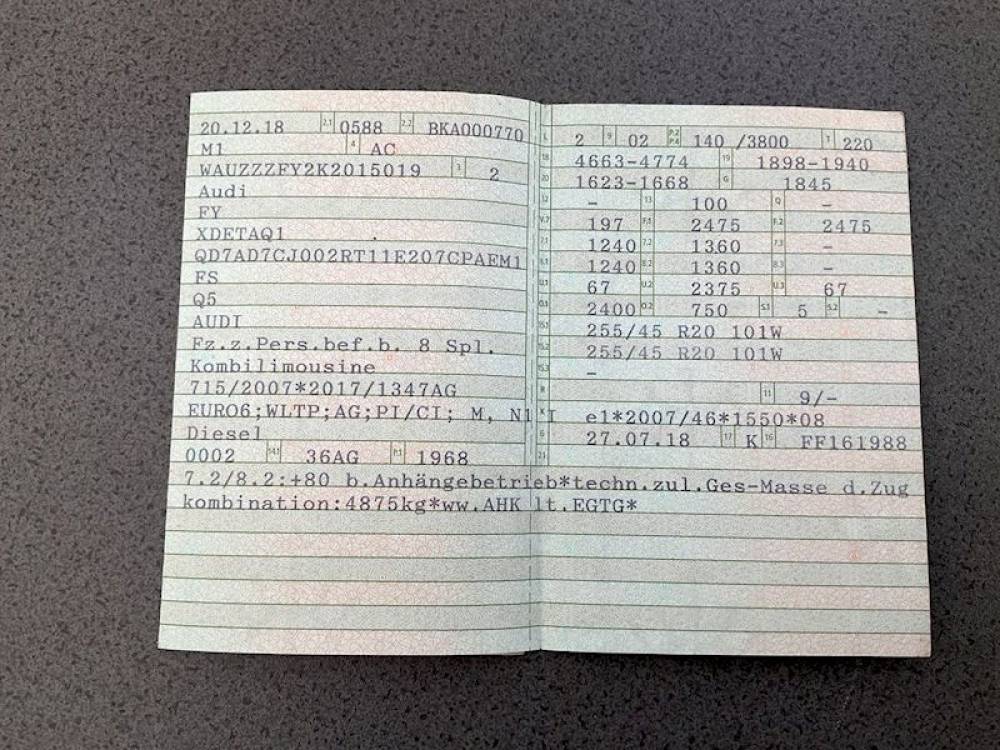 20.12.18 2.1 0588 2.2 BKA000770
M1 4 AC
WAUZZZFY2K2015019 3 2
Audi
FY
XDETAQ1
QD7AD7CJ002RT11E207CPAEM1
FS
Q5
AUDI
Fz.z.Pers.bef.b. 8 Spl.
Kombilimousine
715/2007*2017/1347AG
EURO6;WLTP;AG;PI/CI; M, N1 I
Diesel
0002 14.1 36AG P.1 1968
L 2 9 02 P.2 P.4 140 /3800 T 220
18 4663-4774 19 1898-1940
20 1623-1668 G 1845
12 - 13 100 Q -
V.7 197 F.1 2475 F.2 2475
7.1 1240 7.2 1360 7.3 -
8.1 1240 8.2 1360 8.3 -
U.1 67 U.2 2375 U.3 67
O.1 2400 O.2 750 S.1 5 S.2 -
15.1 255/45 R20 101W
15.2 255/45 R20 101W
15.3 -
R 11 9/-
K e1*2007/46*1550*08
6 27.07.18 17 K 16 FF161988
21
7.2/8.2:+80 b.Anhängebetrieb*techn.zul.Ges-Masse d.Zug
kombination:4875kg*ww.AHK lt.EGTG*